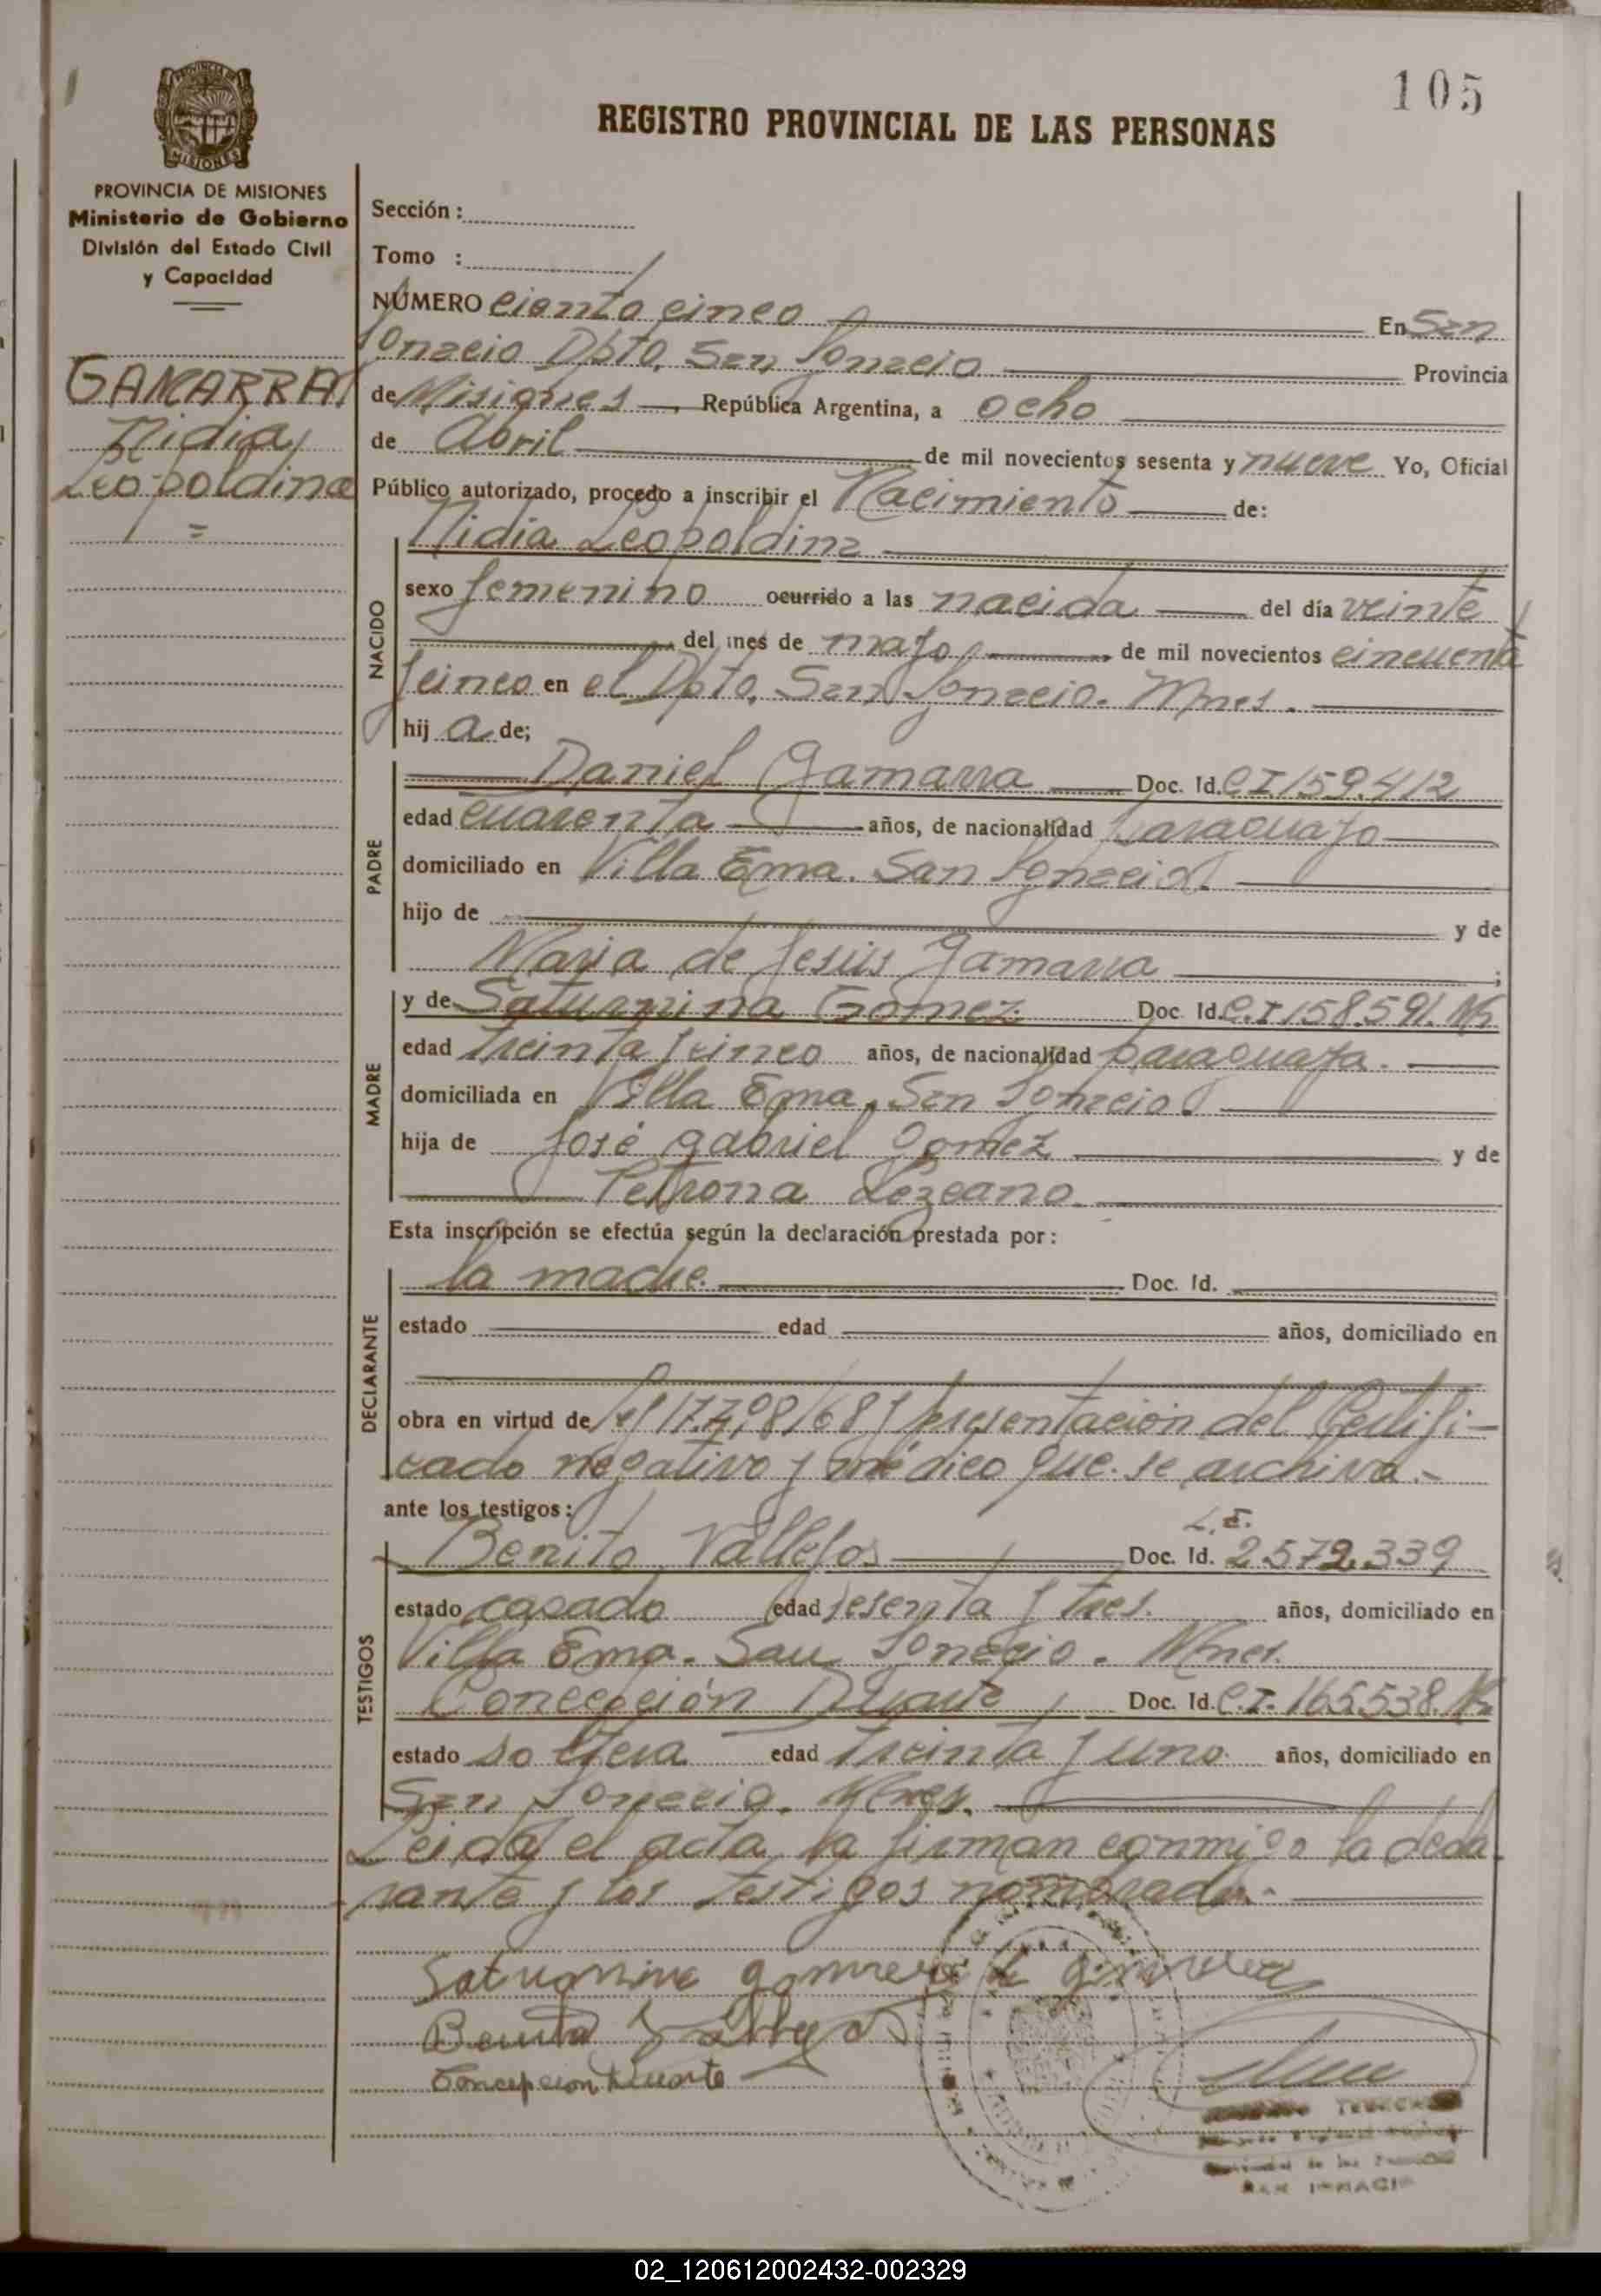 105
REGISTRO PROVINCIAL DE LAS PERSONAS
PROVINCIA DE MISIONES
Ministerio de Gobierno
División del Estado Civil
y Capacidad
GAMARRA
Nidia
Leopoldina
Sección :
Tomo :
NÚMERO ciento cinco En San
Ignacio Dpto. San Ignacio Provincia
de Misiones República Argentina, a ocho
de Abril de mil novecientos sesenta y nueve Yo, Oficial
Público autorizado, procedo a inscribir el Nacimiento de:
NACIDO
Nidia Leopoldina
sexo femenino ocurrido a las nacida del día veinte
del mes de mayo de mil novecientos cincuenta
y cinco en el Dpto. San Ignacio. Mnes.
hij a de;
PADRE
Daniel Gamarra Doc. Id. C.I 159.412
edad cuarenta años, de nacionalidad paraguayo
domiciliado en Villa Ema. San Ignacio.
hijo de y de
Maria de Jesús Gamarra ;
MADRE
y de Saturnina Gomez Doc. Id. C.I 158.591. Ms
edad treinta y cinco años, de nacionalidad paraguaya.
domiciliada en Villa Ema, San Ignacio
hija de José gabriel Gomez y de
Petrona Lezcano.
Esta inscripción se efectúa según la declaración prestada por :
DECLARANTE
la madre. Doc. Id.
estado edad años, domiciliado en
obra en virtud de 17.798/68 y presentación del Certifi-
cado negativo y médico que se archiva.-
ante los testigos :
TESTIGOS
L.E.
Benito Vallejos Doc. Id. 2.572.339
estado casado edad sesenta y tres. años, domiciliado en
Villa Ema. San Ignacio. Mnes.
Concepción Duarte Doc. Id. C.I. 165.538. Ms
estado soltera edad treinta y uno. años, domiciliado en
San Ignacio. Mnes.
Leida el acta, la firman conmigo la decla
rante y los testigos nombrados.-
Saturnina
Concepcion Duarte
SAN IGNACIO
02_120612002432-002329